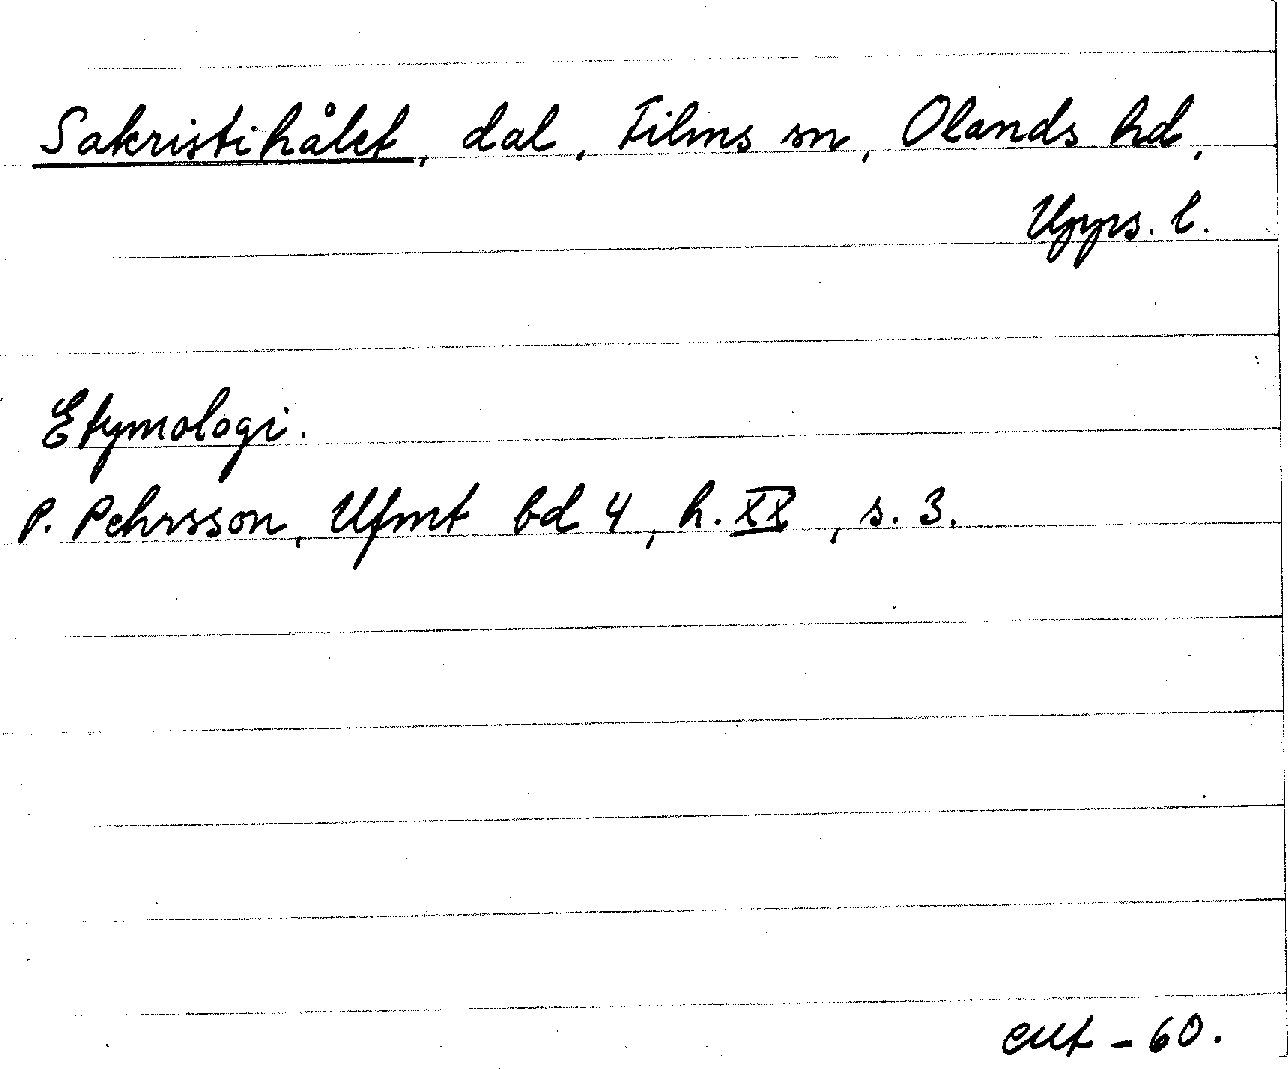 Sakristihålet, dal, Films sn, Olands hd,
Upps. l.
Etymologi.
P. Pehrsson, Ufmt bd 4, h. XX, s. 3.
- 60.